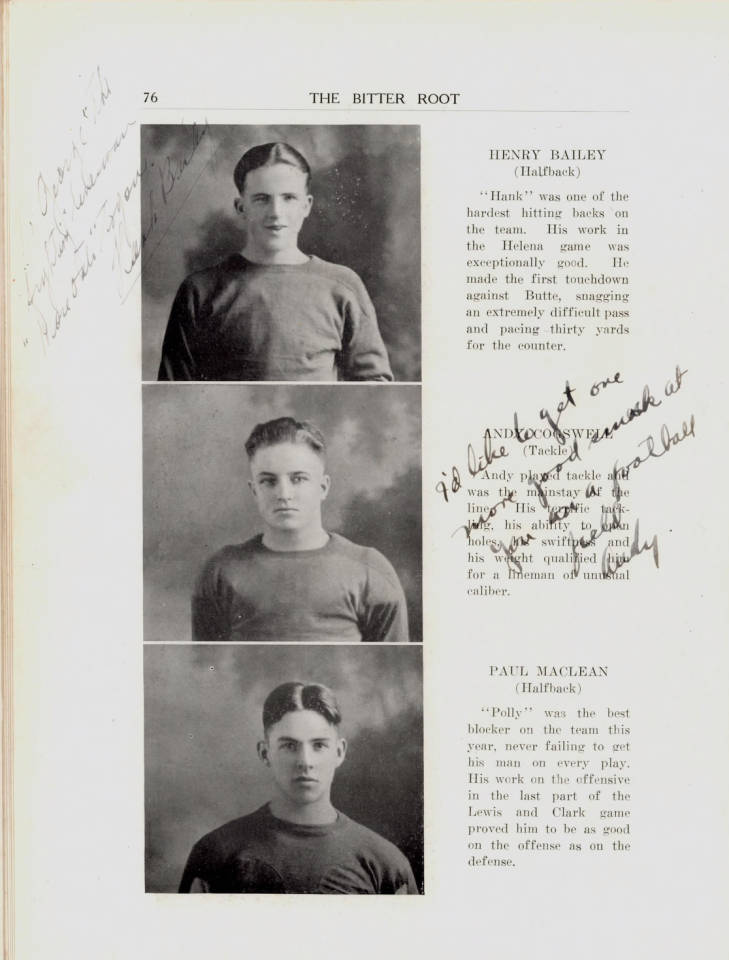 76 THE BITTER ROOT
"George" the
Hank Bailey
HENRY BAILEY
(Halfback)
"Hank" was one of the
hardest hitting backs on
the team. His work in
the Helena game was
exceptionally good. He
made the first touchdown
against Butte, snagging
an extremely difficult pass
and pacing thirty yards
for the counter.
I'd like to get one
more good smack at
you on a football
field
Andy
ANDY COGSWELL
(Tackle)
Andy played tackle and
was the mainstay of the
line. His terrific tack-
ling, his ability to open
holes, his swiftness and
his weight qualified him
for a lineman of unusual
caliber.
PAUL MACLEAN
(Halfback)
"Polly" was the best
blocker on the team this
year, never failing to get
his man on every play.
His work on the offensive
in the last part of the
Lewis and Clark game
proved him to be as good
on the offense as on the
defense.